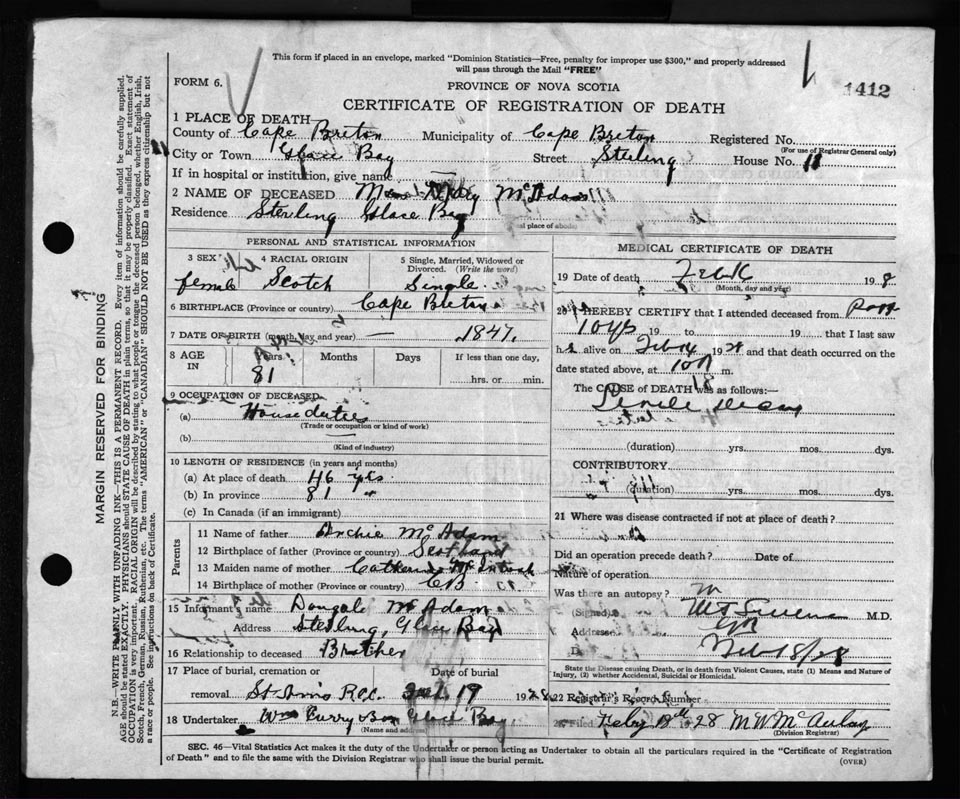 This form if placed in an envelope, marked "Dominion Statistics—Free, penalty for improper use $300," and properly addressed
will pass through the Mail "FREE"
FORM 6.
PROVINCE OF NOVA SCOTIA
1412
CERTIFICATE OF REGISTRATION OF DEATH
1 PLACE OF DEATH
County of Cape Breton Municipality of Cape Breton Registered No.
(For use of Registrar General only)
City or Town Glace Bay Street Sterling House No. 18
If in hospital or institution, give name
2 NAME OF DECEASED Mary McAdam
Residence Sterling Glace Bay
PERSONAL AND STATISTICAL INFORMATION
3 SEX 4 RACIAL ORIGIN 5 Single, Married, Widowed or
Divorced. (Write the word)
female Scotch Single
6 BIRTHPLACE (Province or country) Cape Breton
7 DATE OF BIRTH (month, day and year) — 1847.
8 AGE IN Years Months Days If less than one day,
81 hrs. or min.
9 OCCUPATION OF DECEASED
(a) House duties
(Trade or occupation or kind of work)
(b)
(Kind of industry)
10 LENGTH OF RESIDENCE (in years and months)
(a) At place of death 46 yrs.
(b) In province 81 "
(c) In Canada (if an immigrant)
Parents
11 Name of father Archie McAdam
12 Birthplace of father (Province or country) Scotland
13 Maiden name of mother Catherine McIntosh
14 Birthplace of mother (Province or country) C B
15 Informant's name Dougal McAdam
Address Sterling, Glace Bay
16 Relationship to deceased Brother
17 Place of burial, cremation or Date of burial
removal St Anns R.C.C. Feb. 19 1928
18 Undertaker Wm Curry & Son Glace Bay
(Name and address)
MEDICAL CERTIFICATE OF DEATH
19 Date of death 1928
(Month, day and year)
20 I HEREBY CERTIFY that I attended deceased from past
10 yrs 19 to 19 that I last saw
h alive on Feb 19 and that death occurred on the
date stated above, at m.
The CAUSE of DEATH was as follows:
Senile decay
(duration) yrs. mos. dys.
CONTRIBUTORY
(duration) yrs. mos. dys.
21 Where was disease contracted if not at place of death?
Did an operation precede death? Date of
Nature of operation
Was there an autopsy?
(Signed) M.D.
Address
D Feb 18/28
State the Disease causing Death, or in death from Violent Causes, state (1) Means and Nature of
Injury, (2) whether Accidental, Suicidal or Homicidal.
22 Registrar's Record Number
Filed Feby 18th 1928 M W McAulay
(Division Registrar)
SEC. 46—Vital Statistics Act makes it the duty of the Undertaker or person acting as Undertaker to obtain all the particulars required in the "Certificate of Registration
of Death" and to file the same with the Division Registrar who shall issue the burial permit.
(OVER)
MARGIN RESERVED FOR BINDING
N.B.—WRITE PLAINLY WITH UNFADING INK—THIS IS A PERMANENT RECORD. Every item of information should be carefully supplied.
AGE should be stated EXACTLY. PHYSICIANS should STATE CAUSE OF DEATH in plain terms, so that it may be properly classified. Exact statement of
OCCUPATION is very important. RACIAL ORIGIN will be described by stating to what people or tongue the deceased person belonged, whether English, Irish,
Scotch, French, German, Russian, Ruthenian, etc. The terms "AMERICAN" or "CANADIAN" SHOULD NOT BE USED as they express citizenship but not
a race or people. See instructions on back of Certificate.